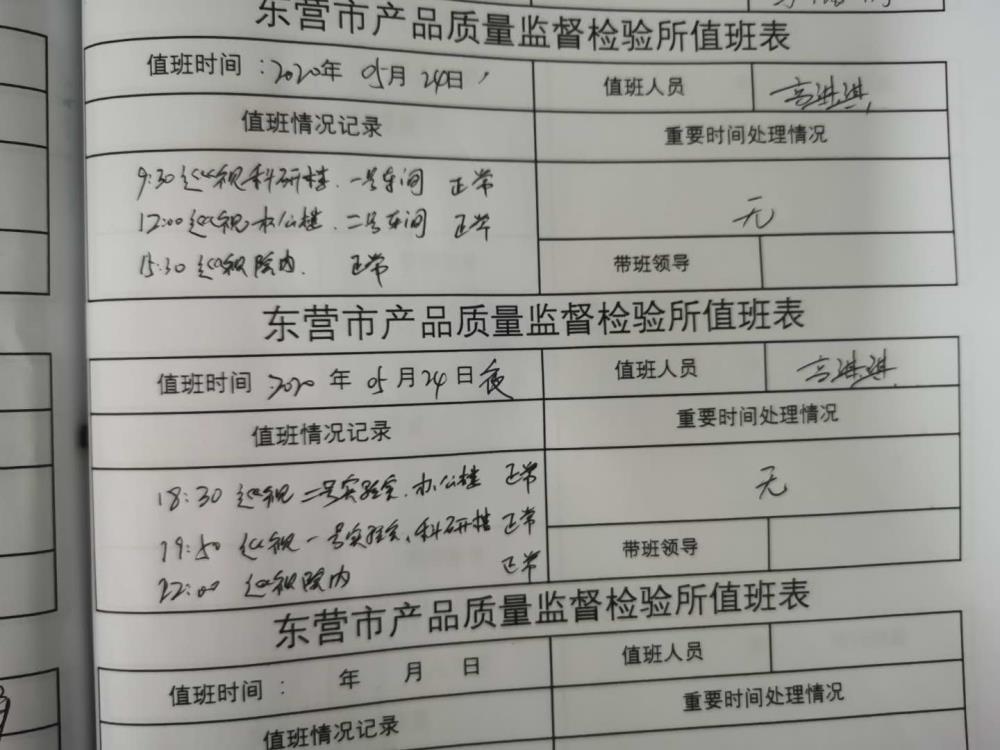 东营市产品质量监督检验所值班表
值班时间：2020年 05月 24日
值班人员 高洪淇
值班情况记录
重要时间处理情况
9:30 巡视科研楼、一号车间 正常
12:00 巡视办公楼、二号车间 正常
15:30 巡视院内、 正常
无
带班领导
东营市产品质量监督检验所值班表
值班时间：2020 年 05 月 24 日 夜
值班人员 高洪淇
值班情况记录
重要时间处理情况
18:30 巡视 二号实验室、办公楼 正常
19:50 巡视 一号实验室、科研楼 正常
22:00 巡视院内 正常
无
带班领导
东营市产品质量监督检验所值班表
值班时间： 年 月 日
值班人员
值班情况记录
重要时间处理情况